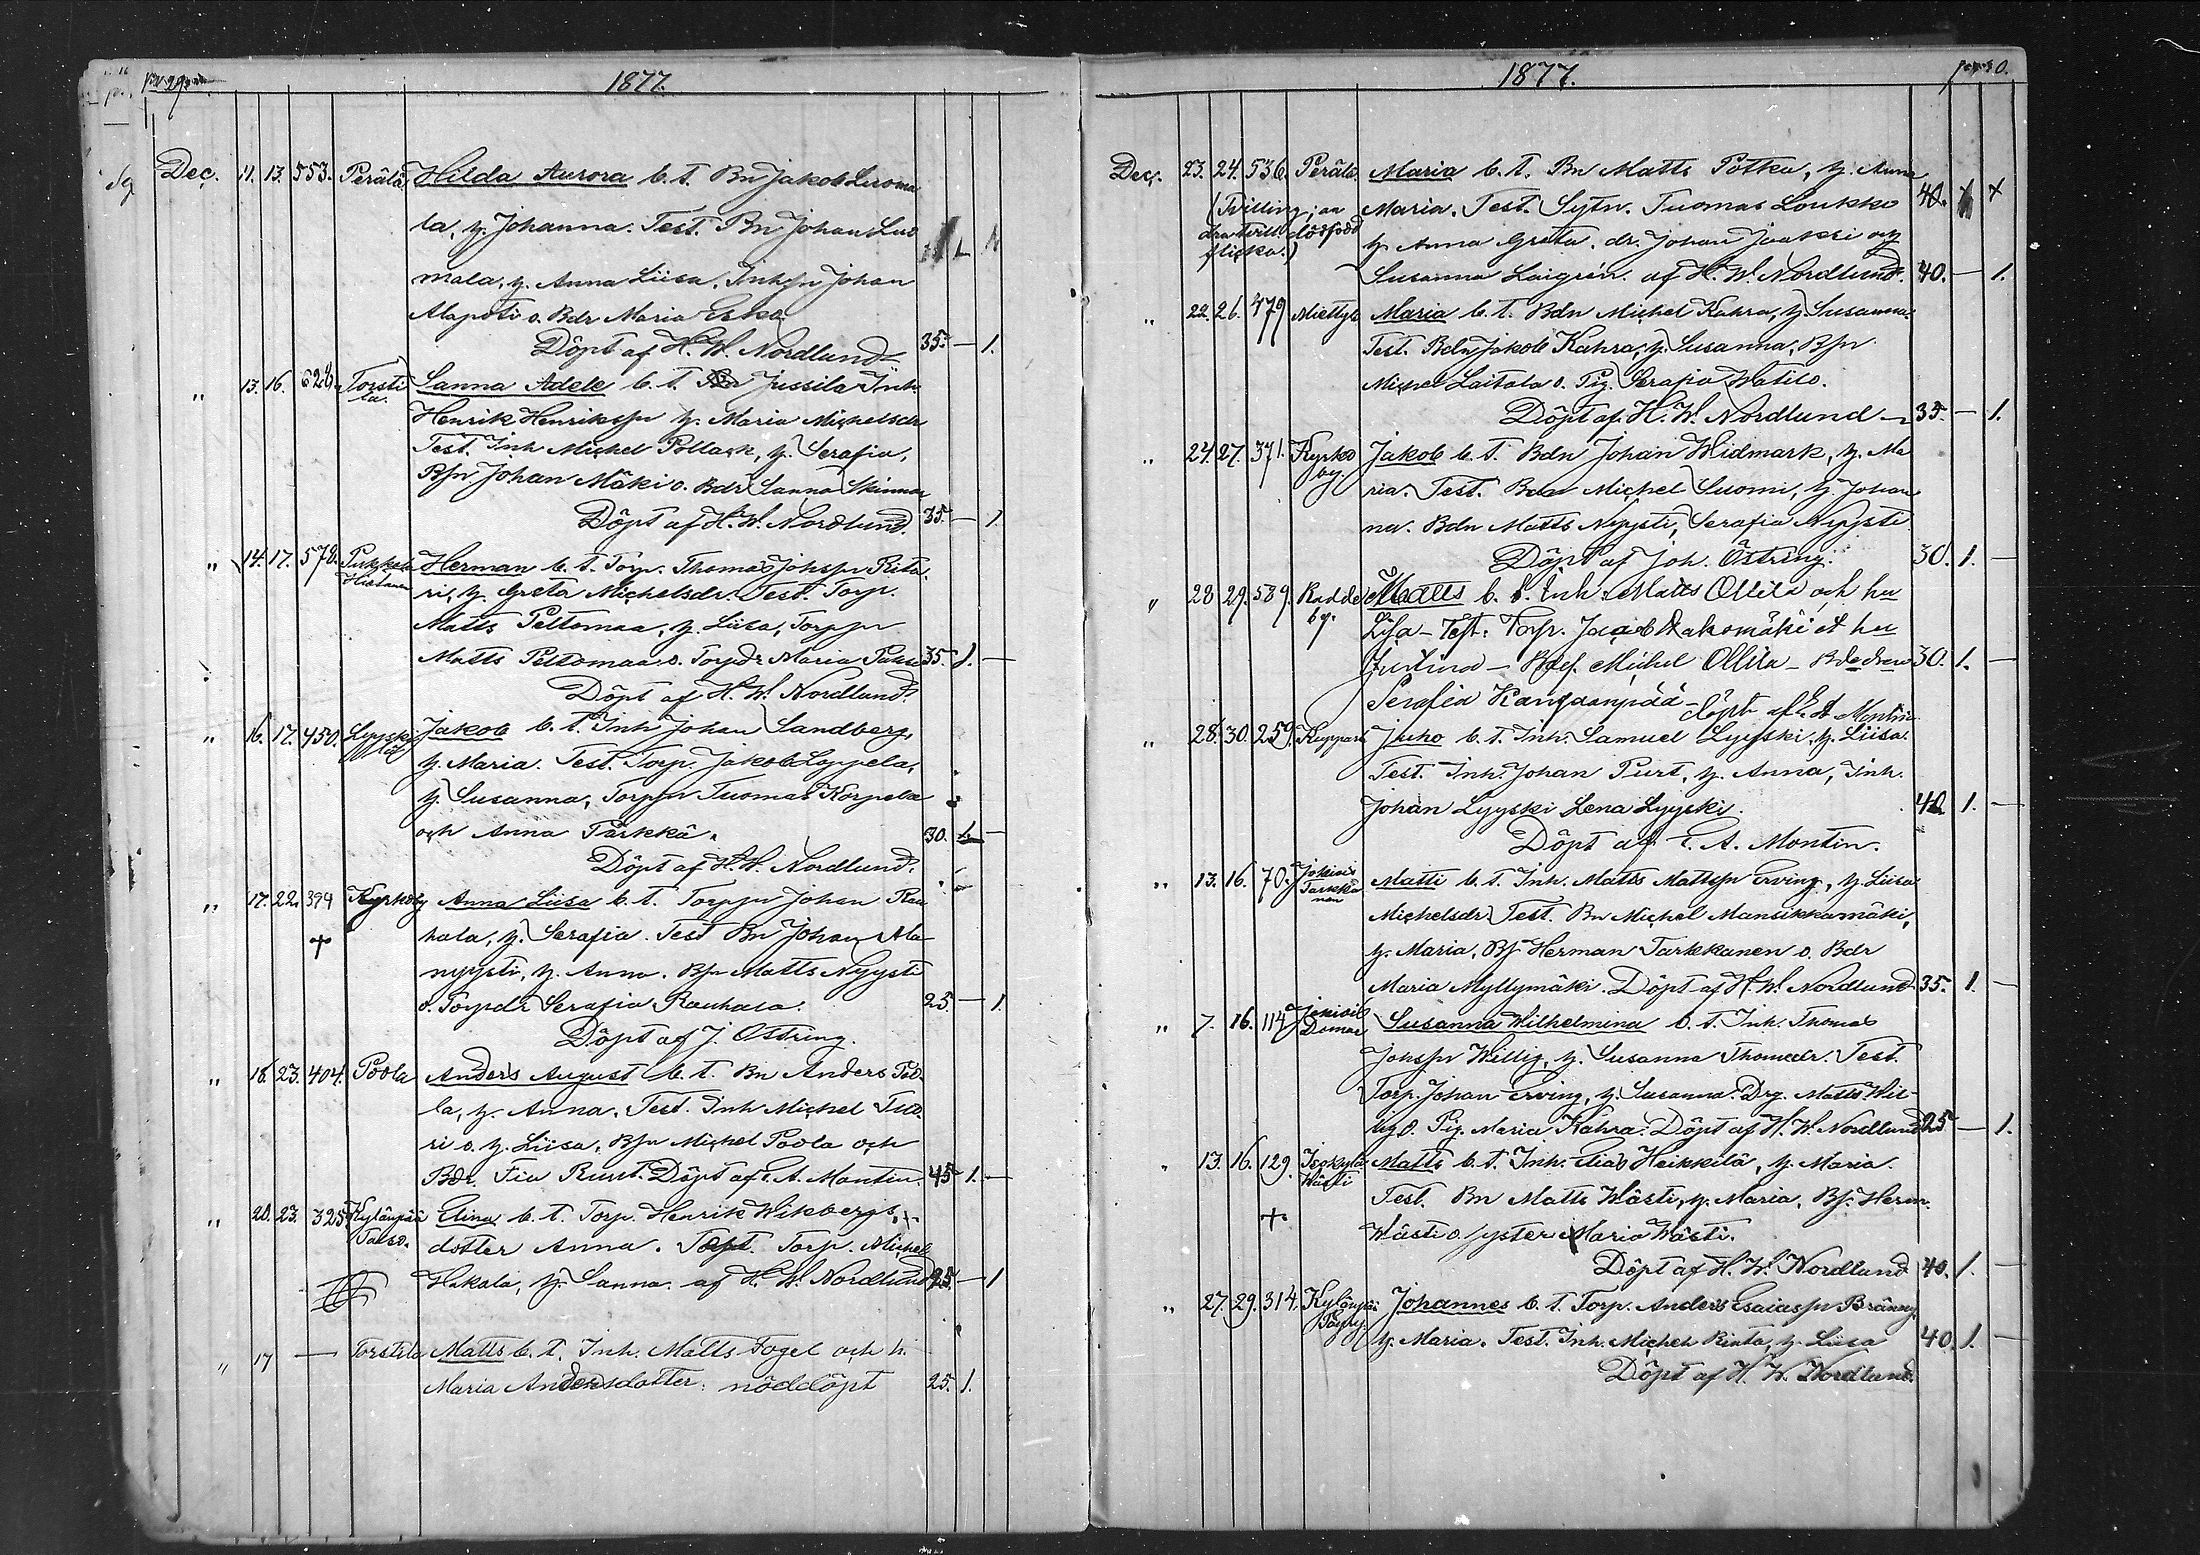 1877.
Dec. 11. 13. 553. Perälä Hilda Aurora b. t. Bn Jakob Luoma
la, h. Johanna. Test. Bn Johan Luo
mala, h. Anna Liisa, Inhsn Johan
Alapoti o. Bdr Maria Esko.
Döpt af H. W. Nordlund 35. — 1.
" 13. 16. 628. Torsti la. Sanna Adele b. t. Jussila Inh.
Henrik Henrikssn h. Maria Michelsdr
Test. Inh Michel Pollack, h. Serafia,
Bsn Johan Mäki o. Bdr Sanna Skinnar
Döpt af H. W. Nordlund. 35. — 1.
" 14. 17. 578. Herman b. t. Torp. Thomas Johssn Rita
ri, h. Greta Michelsdr. Test. Torp.
Matts Peltomaa, h. Liisa, Torpsn
Matts Peltomaa o. Torpdr Maria 35. 1. —
Döpt af H. W. Nordlund.
" 16. 17. 450. Lyyski lä Jakob b. t. Inh Johan Sandberg,
h. Maria. Test. Torp. Jakob Loppela,
h. Susanna, Torpsn Tuomas Korpela
och Anna Parkkä. 30. 1. —
Döpt af H. W. Nordlund.
" 17. 22. 394 Kyrkoby Anna Liisa b. t. Torpsn Johan Rau
+ hala, h. Serafia. Test Bn Johan Ala
nyysti, h. Anna. Bsn Matts Nyysti
o. Torpdr Serafia Rauhala. 25. — 1.
Döpt af J. Östring.
" 18. 23. 404. Poola Anders August b. t. Bn Anders Poo
la, h. Anna. Test. Inh Michel Tuo
ri o. h. Liisa, Bsn Michel Poola och
Bdr. Fia Ruut. Döpt af E. A. Montin. 45 1. —
" 20. 23. 325 Kylänpää Elina b. t. Torp. Henrik Wikbergs
dotter Anna. Torp. Michel
Hakala, h. Sanna. af H. W. Nordlund 25. — 1
" 17 — Torstila Matts b. t. Inh. Matts Fogel och h.
Maria Andersdotter. nöddöpt 25. 1.
1877.
Dec. 23. 24. 536. Perälä. Maria b. t. Bn Matts Potka, h. Anna
(Tvilling; an Maria. Test. Sytn. Tuomas Loukko 40. +
dra tvill dödfödd h. Anna Greta. dr. Johan Jaakki och
flicka.) Susanna Laigrén. af H. W. Nordlund. 40. — 1.
" 22. 26. 479 Miettylä Maria b. t. Bdn Michel Kahra, h. Susanna.
Test. Bdn Jakob Kahra, h. Susanna, Bsn
Michel Laitala o. Pig. Serafia Watilo.
Döpt af H. W. Nordlund — 35. — 1.
" 24. 27. 371. Kyrko by. Jakob b. t. Bdn Johan Widmark, h. Ma
ria. Test. Bdn Michel Suomi, h. Johan
na. Bdn Matts Nyysti, Serafia Nyysti
Döpt af Joh. Östring. 30. 1. —
" 28. 29. 589. Rudde by. Matts b. t. Inh. Matts Ollila och hu
Lisa — Test. Torp. Jacob Hakomäki et hu
Justina — Bsf. Michel Ollila — Bdedren 30. 1. —
Serafia Kangaanpää — Döpt af E. A Montin
" 28. 30. 259. Ruppart Juho b. t. Inh. Samuel Lyyski, h. Liisa.
Test. Inh. Johan Purt, h. Anna, Inh.
Johan Lyyski Lena Lyyski. 40. 1. —
Döpt af E. A. Montin.
" 13. 16. 70. Jokivis Tarkka nen Matti b. t. Inh. Matts Mattssn Erving, h. Liisa
Michelsdr Test. Bn Michel Mansikkamäki,
h. Maria, Bs Herman Tarkkanen o. Bdr
Maria Myllymäki. Döpt af H. W. Nordlund 35. 1. —
" 7. 16. 114 Jokivis Domar Susanna Wilhelmina b. t. Inh. Thomas
Johssn Willig, h. Susanna Thomasdr. Test.
Torp. Johan Erving, h. Susanna. Drg. Matts Wil-
lig o. Pig. Maria Kahra. Döpt af H. W. Nordlund 25 — 1.
" 13. 16. 129. Wästi Matts b. t. Inh. Elias Heikkilä, h. Maria.
Test. Bn Matts Wästi, h. Maria, Bs. Herm.
+ Wästi o. syster Maria Wästi.
Döpt af H. W. Nordlund 40. 1. —
" 27. 29. 314. Kylänpää Johannes b. t. Torp. Anders Esaiassn Bränny
h. Maria. Test. Inh. Michel Rinta, h. Liisa 40. 1. —
Döpt af H. W. Nordlund.